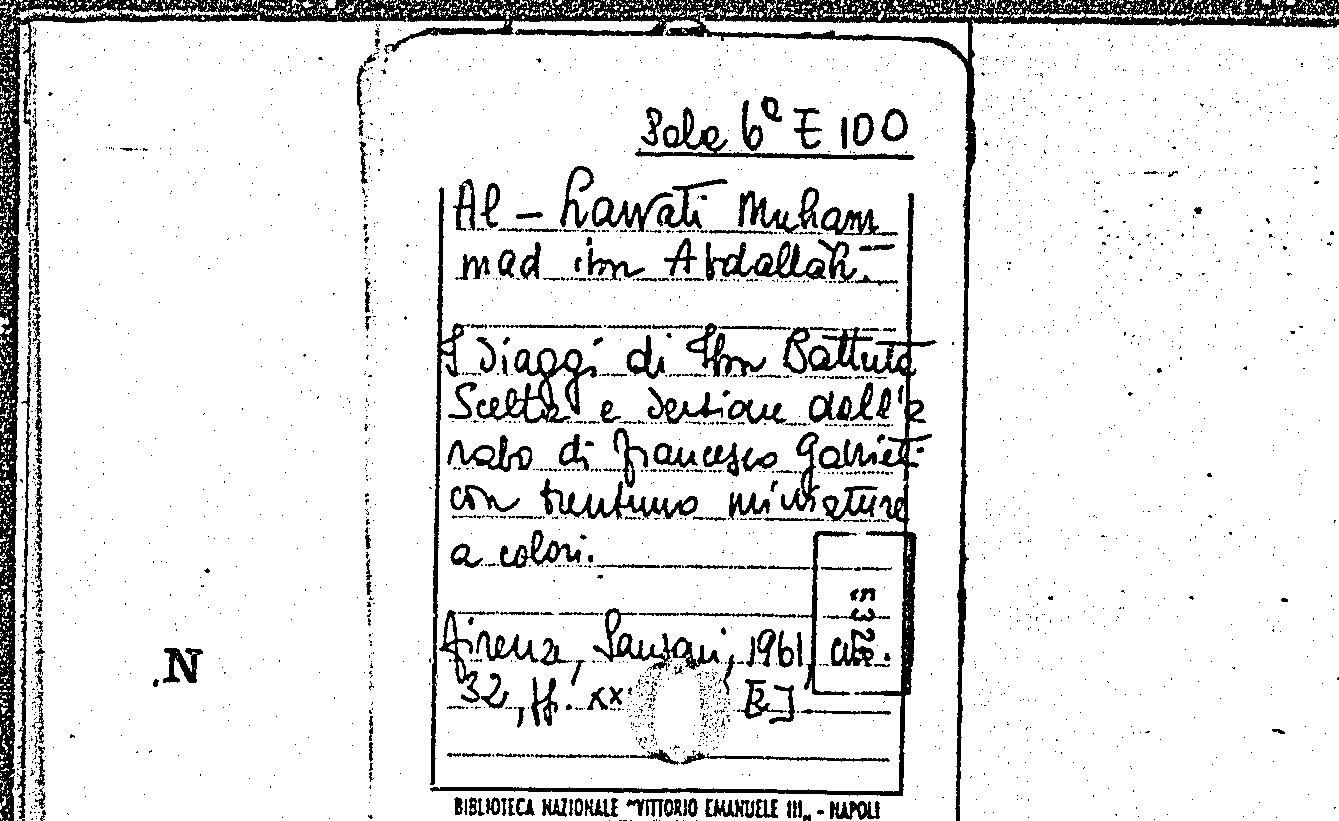 Sala 6ª E 100
Al - Lawati Muham
mad ibn Abdallāh.-
I Viaggi di Ibn Battuta
Scelta e versione dall'a
rabo di Francesco Gabrieli
con trentuno miniature
a colori.
Firenze, Sansoni, 1961, cm.
32, ff. xx
5328
.N
BIBLIOTECA NAZIONALE "VITTORIO EMANUELE III„ - NAPOLI